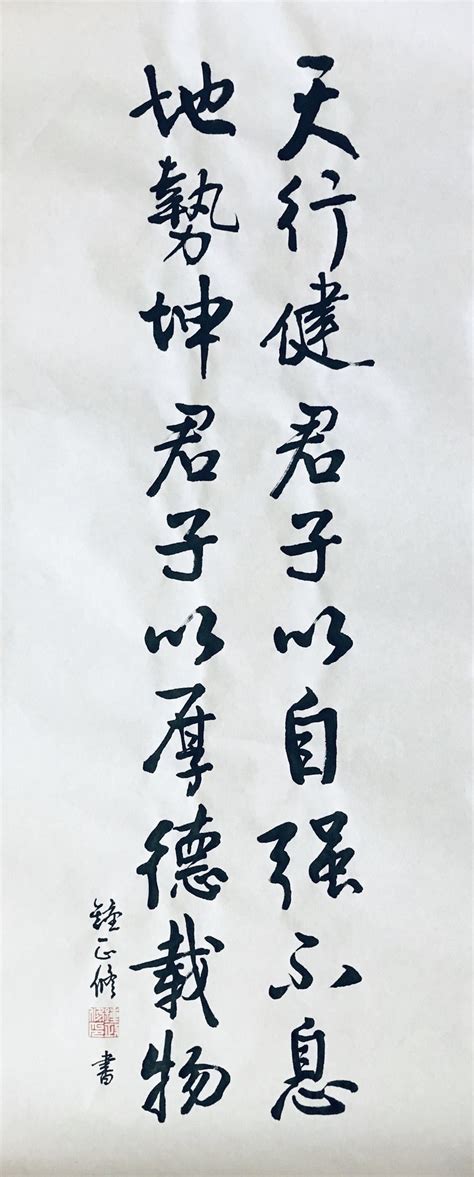 天行健君子以自强不息
地勢坤君子以厚德載物
鐘正修
書